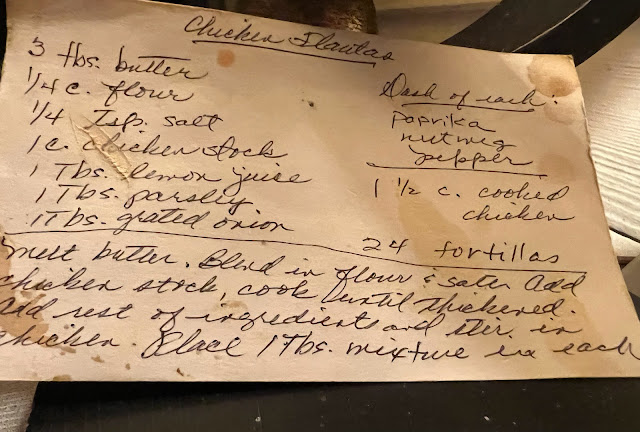 Chicken Flautas
3 tbs. butter
1/4 c. flour
1/4 Tsp. salt
1 c. chicken stock
1 Tbs. lemon juice
1 Tbs. parsley
1 Tbs. grated onion
Dash of each:
Paprika
nutmeg
pepper
1 1/2 c. cooked
chicken
24 tortillas
melt butter. Blend in flour & salt. Add
chicken stock, cook until thickened.
Add rest of ingredients and stir in
chicken. Place 1 Tbs. mixture in each